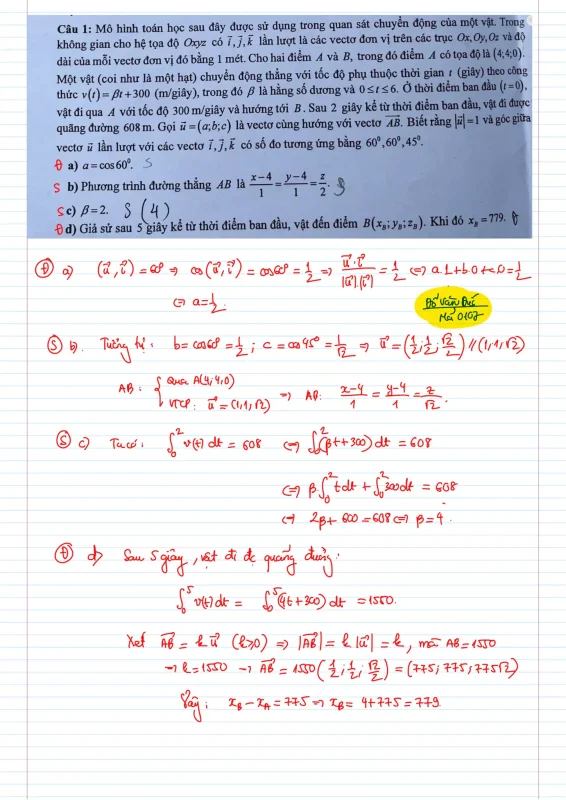 Câu 1: Mô hình toán học sau đây được sử dụng trong quan sát chuyển động của một vật. Trong
không gian cho hệ tọa độ Oxyz có i⃗, j⃗, k⃗ lần lượt là các vectơ đơn vị trên các trục Ox, Oy, Oz và độ
dài của mỗi vectơ đơn vị đó bằng 1 mét. Cho hai điểm A và B, trong đó điểm A có tọa độ là (4;4;0).
Một vật (coi như là một hạt) chuyển động thẳng với tốc độ phụ thuộc thời gian t (giây) theo công
thức v(t) = βt + 300 (m/giây), trong đó β là hằng số dương và 0 ≤ t ≤ 6. Ở thời điểm ban đầu (t = 0),
vật đi qua A với tốc độ 300 m/giây và hướng tới B. Sau 2 giây kể từ thời điểm ban đầu, vật đi được
quãng đường 608 m. Gọi u⃗ = (a;b;c) là vectơ cùng hướng với vectơ AB⃗. Biết rằng |u⃗| = 1 và góc giữa
vectơ u⃗ lần lượt với các vectơ i⃗, j⃗, k⃗ có số đo tương ứng bằng 60⁰, 60⁰, 45⁰.
Đ a) a = cos 60⁰. S
S b) Phương trình đường thẳng AB là (x-4)/1 = (y-4)/1 = z/2. S
S c) β = 2. S (4)
Đ d) Giả sử sau 5 giây kể từ thời điểm ban đầu, vật đến điểm B(x_B; y_B; z_B). Khi đó x_B = 779. Đ
Đ a) (u⃗, i⃗) = 60° => cos(u⃗, i⃗) = cos60° = 1/2 => u⃗.i⃗/(|u⃗|.|i⃗|) = 1/2 <=> a.1 + b.0 + c.0 = 1/2
<=> a = 1/2.
Đỗ Văn Đức
Mã 0107
S b. Tương tự: b = cos60° = 1/2; c = cos45° = 1/√2 => u⃗ = (1/2; 1/2; √2/2) // (1,1,√2)
AB: { Qua A(4,4,0)
VTCP: u⃗ = (1,1,√2) => AB: (x-4)/1 = (y-4)/1 = z/√2.
S c) Ta có: ∫₀² v(t) dt = 608 <=> ∫₀² (βt + 300) dt = 608
<=> β.∫₀² t dt + ∫₀² 300 dt = 608
<=> 2β + 600 = 608 <=> β = 4.
Đ d) Sau 5 giây, vật đi đc quãng đường:
∫₀⁵ v(t) dt = ∫₀⁵ (4t + 300) dt = 1550.
Xét AB⃗ = k u⃗ (k≥0) => |AB⃗| = k|u⃗| = k, mà AB = 1550
→ k = 1550 → AB⃗ = 1550(1/2; 1/2; √2/2) = (775; 775; 775√2)
Vậy: x_B - x_A = 775 => x_B = 4 + 775 = 779